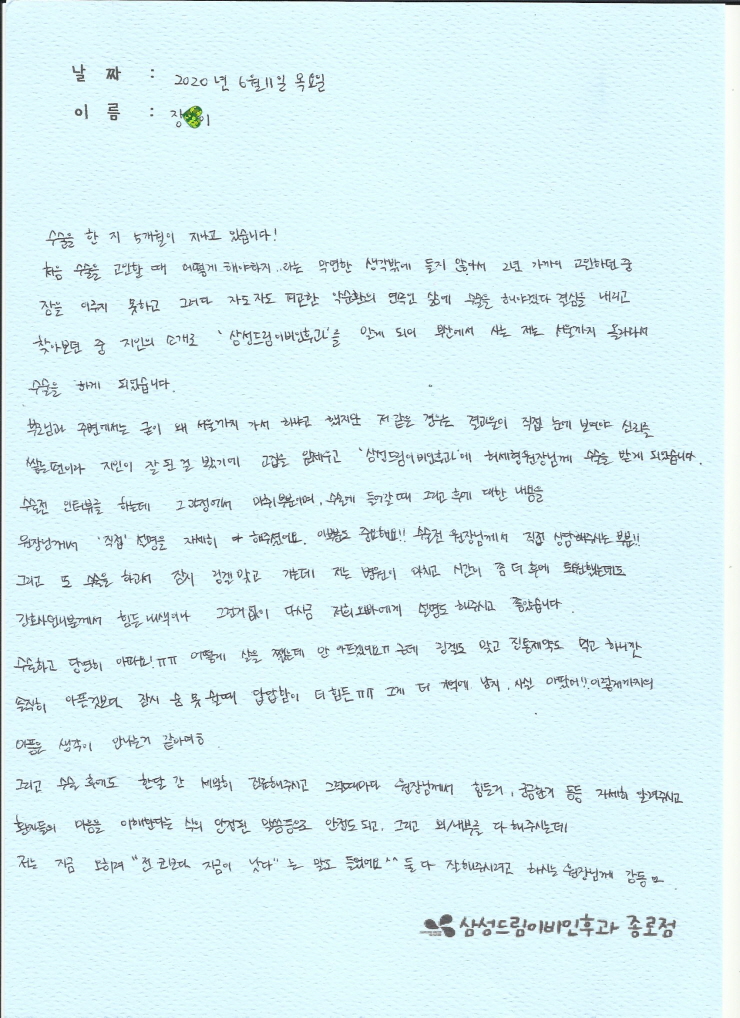 날 짜 : 2020년 6월 11일 목요일
이 름 : 장 이
수술을 한 지 5개월이 지나고 있습니다!
처음 수술을 고민할 때 어떻게 해야하지..라는 막연한 생각밖에 들지 않아서 2년 가까이 고민하던 중
잠을 이루지 못하고 그러다 자도자도 피곤한 악순환의 연속인 삶에 수술을 해야겠다 결심을 내리고
찾아보던 중 지인의 소개로 '삼성드림이비인후과'를 알게 되어 부산에서 사는 저는 서울까지 올라와서
수술을 하게 되었습니다.
부모님과 주변에서는 굳이 왜 서울까지 가서 하냐고 했지만 저 같은 경우는 결과물이 직접 눈에 보여야 신뢰를
쌓는편이라 지인이 잘 된 걸 봤기에 고집을 앞세우고 '삼성드림이비인후과'에 허세형원장님께 수술을 받게 되었습니다.
수술전 인터뷰를 하는데 그 과정에서 마취부분이며, 수술에 들어갈 때 그리고 후에 대한 내용을
원장님께서 '직접' 설명을 자세히 다 해주셨어요. 이부분도 중요해요!! 수술전 원장님께서 직접 상담해주시는 부분!!
그리고 또 수술을 하고서 잠시 링겔 맞고 가는데 저는 병원이 마치고 시간이 좀 더 후에 퇴원했는데도
간호사언니분께서 힘든 내색이나 그런거 없이 다시금 저희 오빠에게 설명도 해주시고 좋았습니다.
수술하고 당연히 아파요!ㅠㅠ 어떻게 살을 쨌는데 안 아프겠어요ㅠ 근데 링겔도 맞고 진통제약도 먹고 하니깐
솔직히 아픈것보다 잠시 숨 못 쉴때 답답함이 더 힘든ㅠㅠ 그게 더 기억에 남지, 사실 아팠어!!이렇게까지의
아픔은 생각이 안나는거 같아여ㅎ
그리고 수술 후에도 한달 간 세밀히 진료해주시고 그럴때마다 원장님께서 힘든거, 궁금한거 등등 자세히 알려주시고
환자들의 마음을 이해한다는 식의 안정된 말씀등으로 안정도 되고, 그리고 외/내부를 다 해주시는데
저는 지금 오히려 "전 코보다 지금이 낫다"는 말도 들었어요^^ 둘 다 잘해주시려고 하시는 원장님께 감동ㅁ
삼성드림이비인후과 종로점